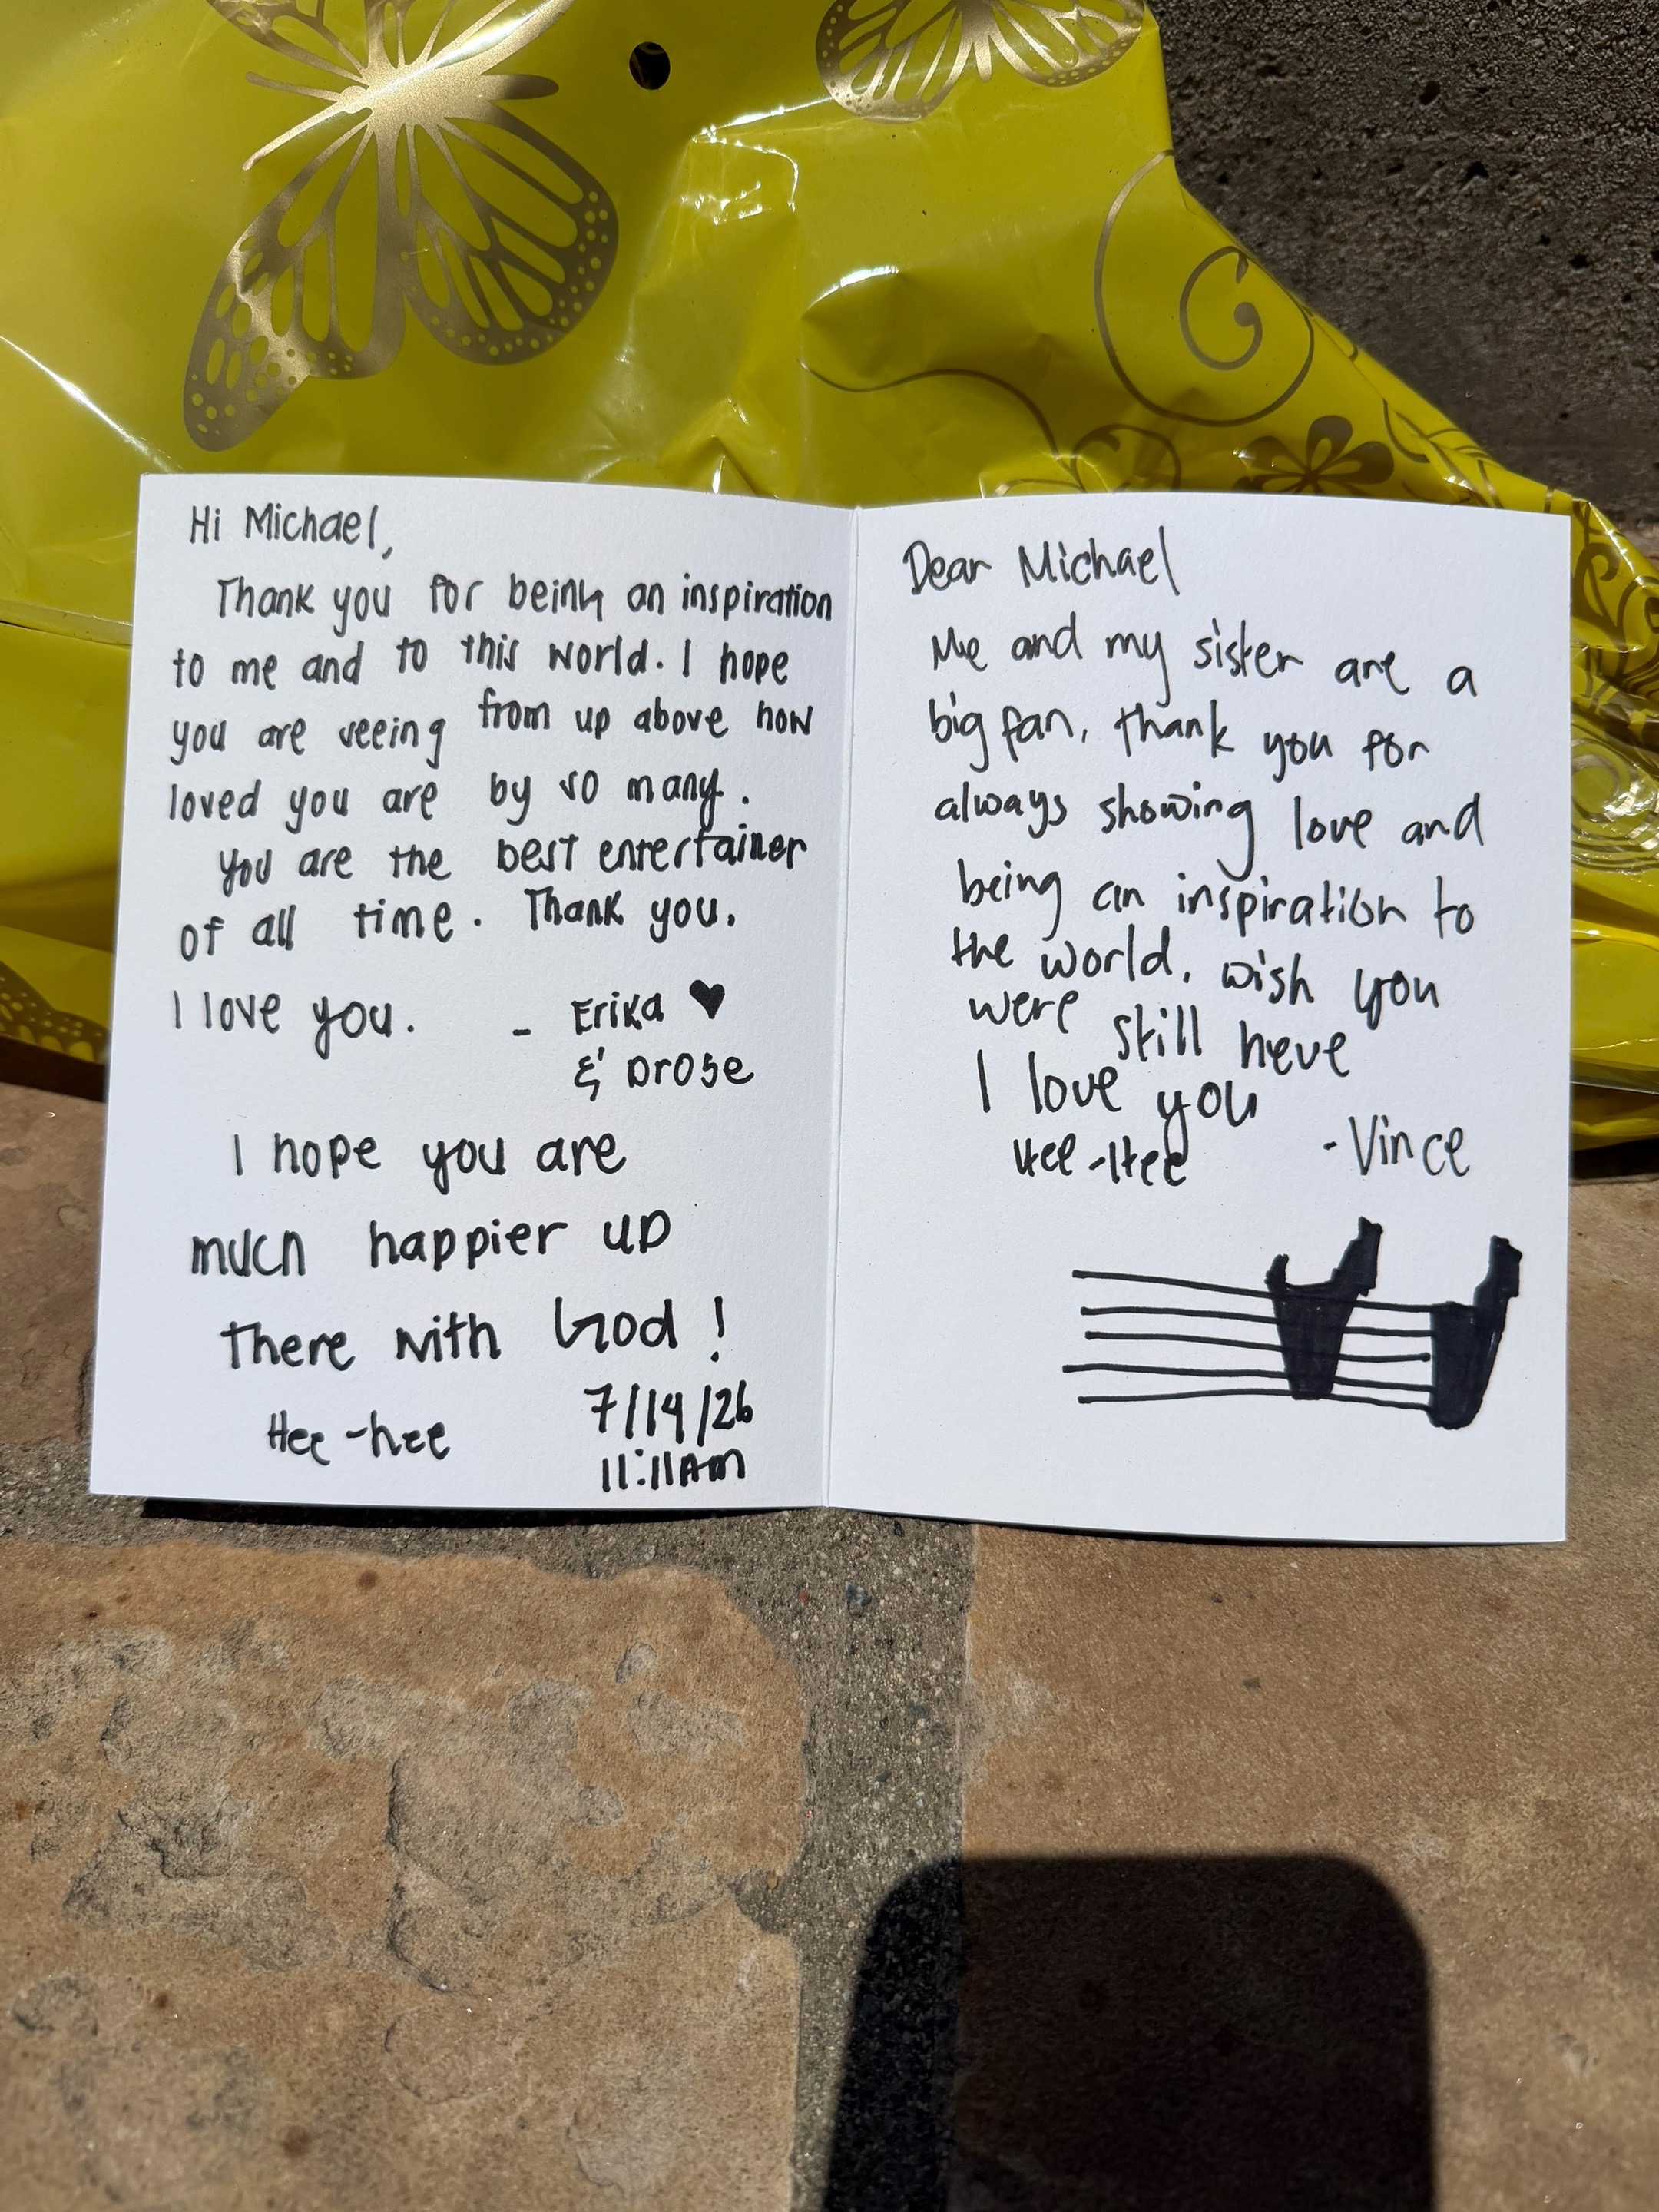 Hi Michael,
Thank you for being an inspiration
to me and to this world. I hope
you are seeing from up above how
loved you are by so many.
You are the best entertainer
of all time. Thank you.
I love you. - Erika ♥
& Drose
I hope you are
much happier up
there with God!
Hee-hee 7/14/26
11:11AM
Dear Michael
Me and my sister are a
big fan, thank you for
always showing love and
being an inspiration to
the world, wish you
were still here
I love you
Hee-Hee -Vince